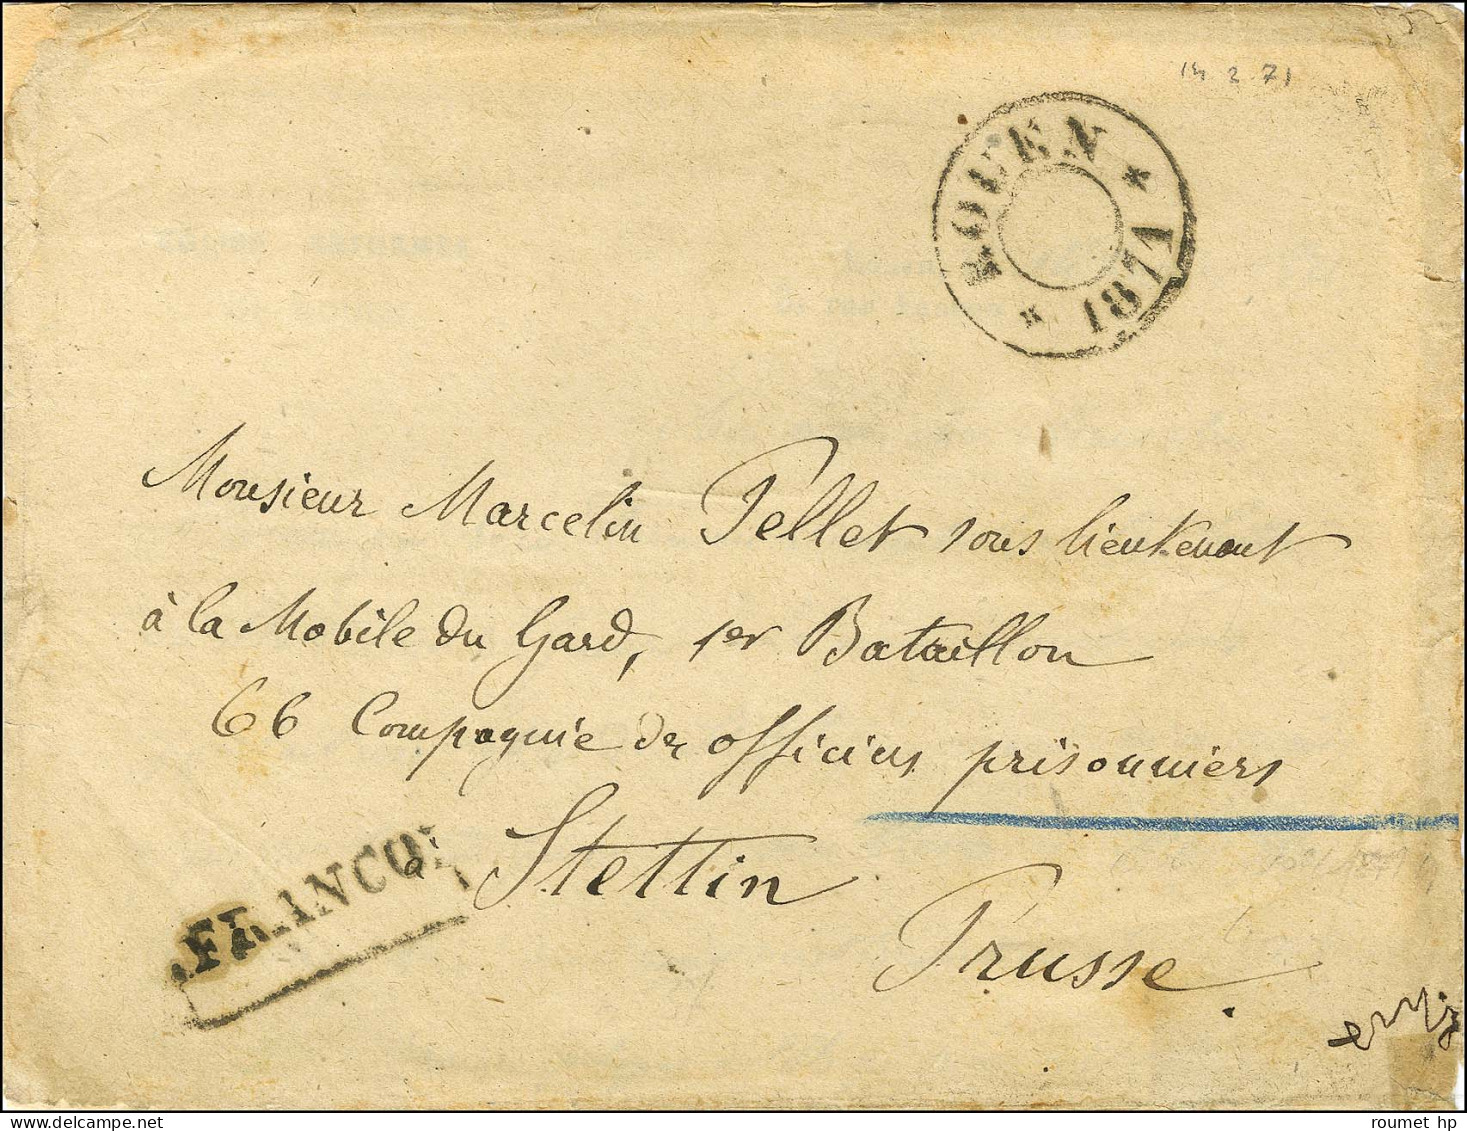 14 2 71
ROUEN * 1871 *
Monsieur Marcelin Pellet sous lieutenant
à la Mobile du Gard, 1er Bataillon
66 Compagnie de officiers prisonniers
à Stettin
FRANCO.
Prusse.
roumet hp